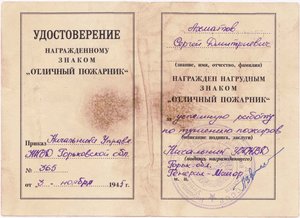 УДОСТОВЕРЕНИЕ
НАГРАЖДЕННОМУ
ЗНАКОМ
„ОТЛИЧНЫЙ ПОЖАРНИК“
Приказ Начальника Управл.
НКВД Горьковской обл.
№ 365
от 3 ноября 194 г.
Ахматов
Сергей Дмитриевич
(звание, имя, отчество, фамилия)
НАГРАЖДЕН НАГРУДНЫМ
ЗНАКОМ
„ОТЛИЧНЫЙ ПОЖАРНИК“
за успешную работу
по тушению пожаров
(описание подвига, заслуги)
Начальник УНКВД
(подпись награжденного)
Горьк. обл.
Генерал-Майор
м. п.